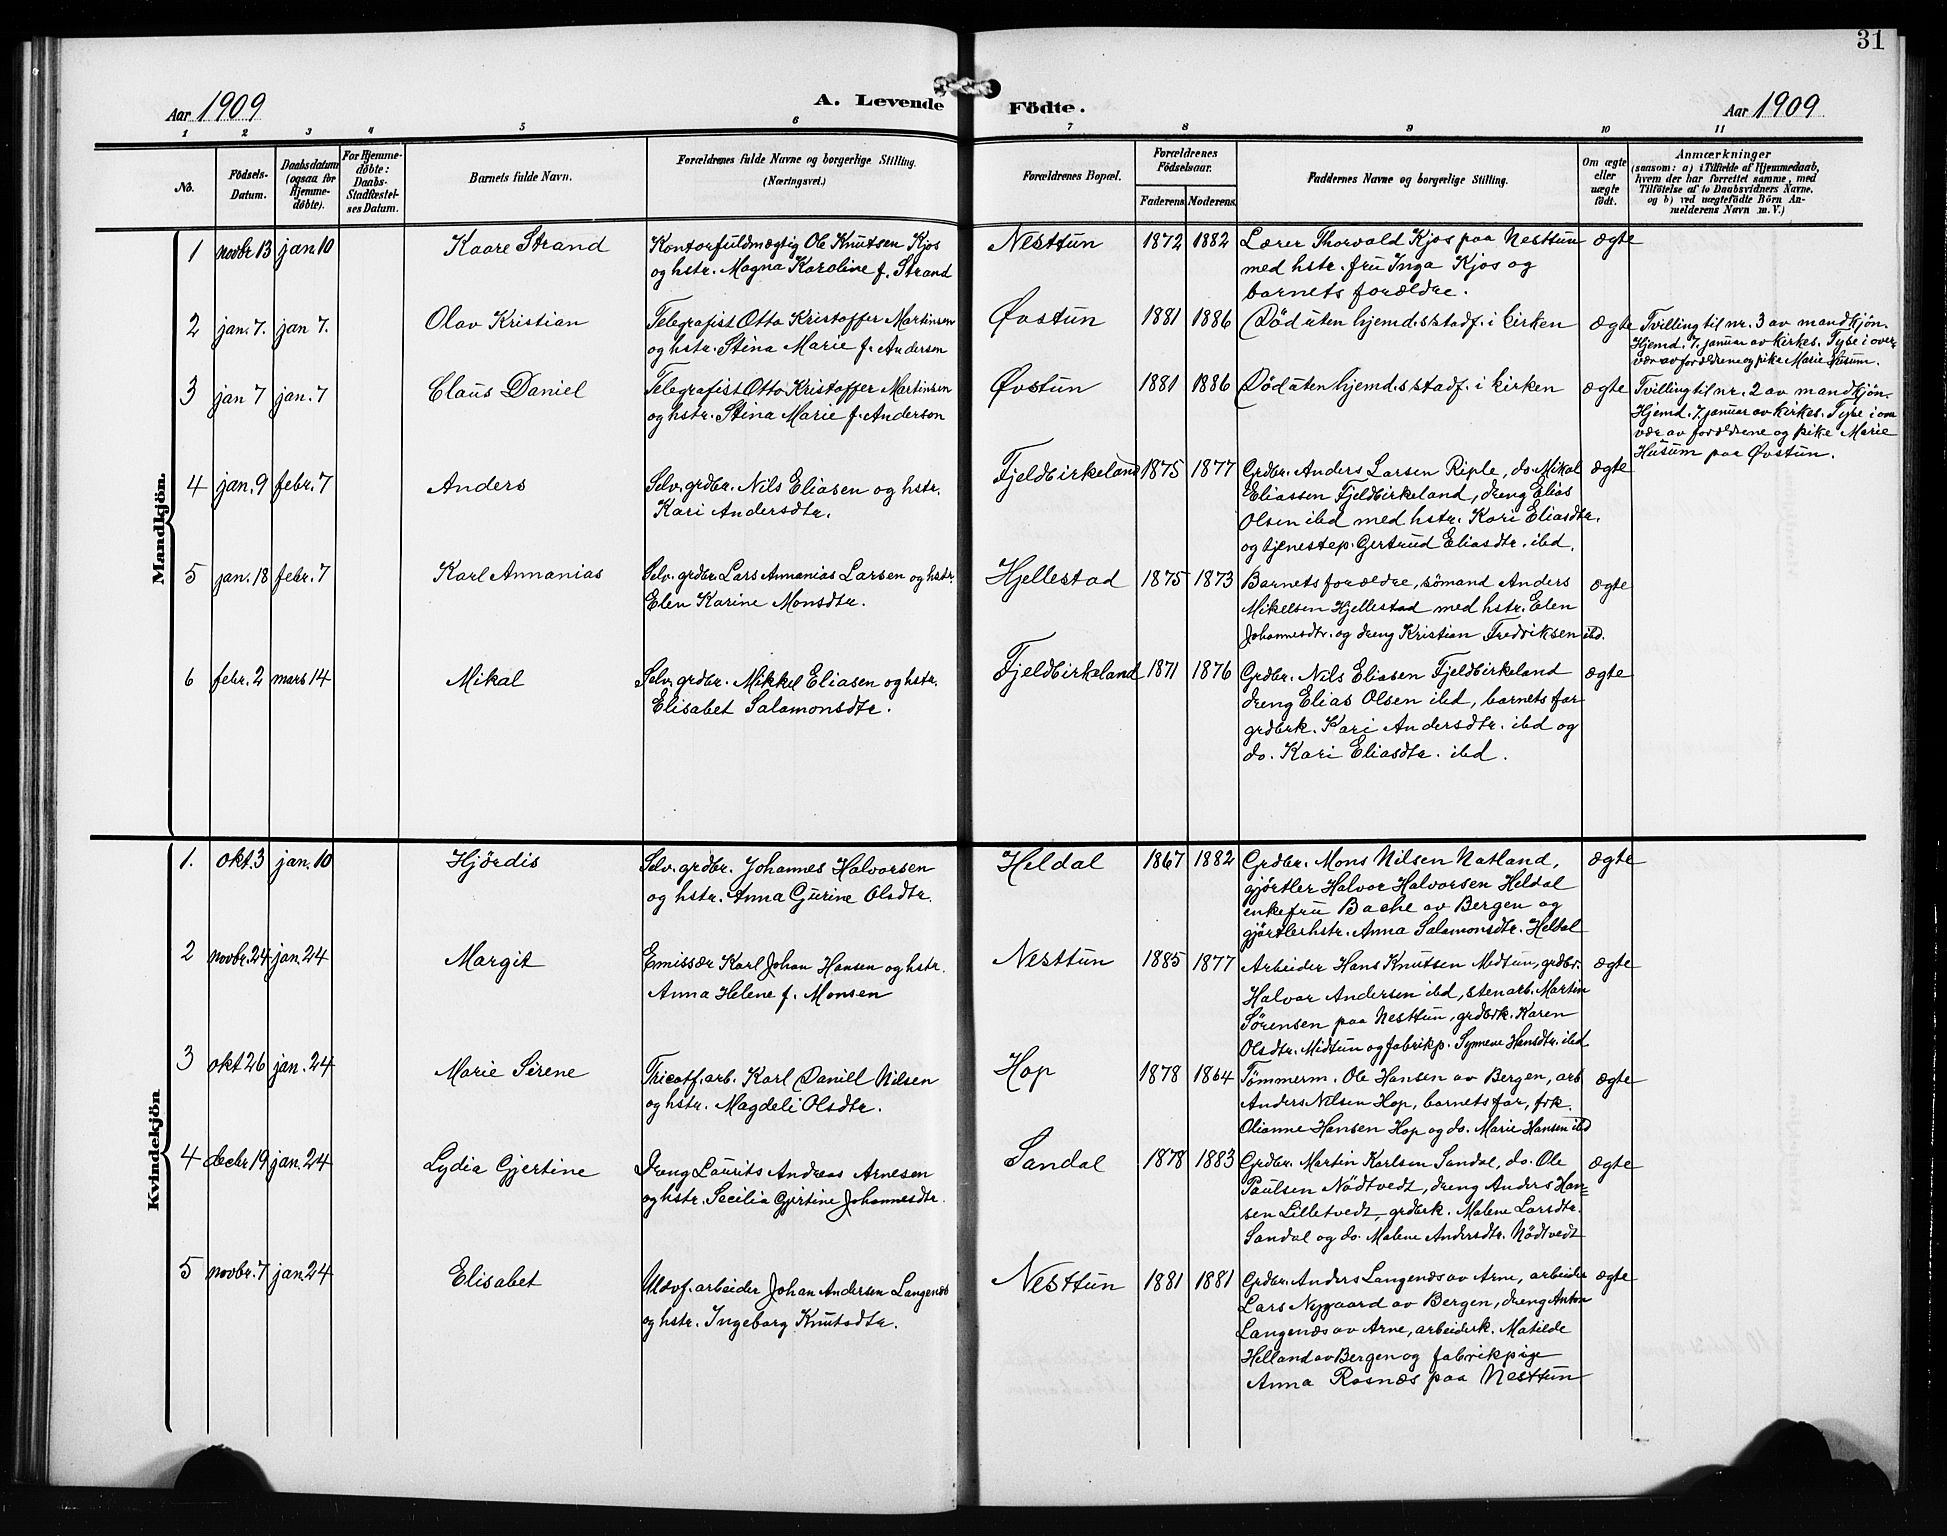 31
Aar 1909
A. Levende Födte.
Aar 1909
1 2 3 4 5 6 7 8 9 10 11
No.
Födsels-Datum.
Daabsdatum (ogsaa for Hjemme-døbte).
For Hjemme-døbte: Daabs-Stadfæstel-ses Datum.
Barnets fulde Navn.
Forældrenes fulde Navne og borgerlige Stilling. (Næringsvei.)
Forældrenes Bopæl.
Forældrenes Födselsaar.
Faderens. Moderens.
Faddernes Navne og borgerlige Stilling.
Om ægte eller uægte født.
Anmærkninger
(saasom: a) i Tilfælde af Hjemmedaab,
hvem der har forrettet samme, med
Tilføielse af to Daabsvidners Navne.
og b) ved uægtefødte Börn An-
melderens Navn m. V.)
Mandkjön.
1 novbr 13 jan 10 Kaare Strand
Kontorfuldmægtig Ole Knutsen Kjos
og hstr. Magna Karoline f. Strand
Nesttun 1872 1882
Lærer Thorvald Kjos paa Nesttun
med hstr. fru Inga Kjos og
barnets forældre.
ægte
2 jan. 7. jan 7. Olav Kristian
Telegrafist Otto Kristoffer Martinsen
og hstr. Stina Marie f. Anderson
Øvstun 1881 1886
Död uten hjemd.s stadf. i kirken
ægte
Tvilling til nr. 3 av mandkjön.
Hjemd. 7. januar av kirkes. Tybe i over
vær av forældrene og pike Marie Husum.
3 jan 7 jan. 7 Claus Daniel
Telegrafist Otto Kristoffer Martinsen
og hstr. Stina Marie f. Anderson
Øvstun 1881 1886
Död uten hjemd.s stadf. i kirken
ægte
Tvilling til nr. 2 av mandkjön.
Hjemd. 7. januar av kirkes. Tybe i over
vær av forældrene og pike Marie
Husum paa Øvstun.
4 jan. 9 febr. 7 Anders
Selv. grdbr. Nils Eliasen og hstr.
Kari Andersdtr.
Fjeldbirkeland 1875 1877
Grdbr. Anders Larsen Riple, do. Mikal
Eliassen Fjeldbirkeland, dreng Elias
Olsen ibd med hstr. Kari Eliasdtr.
og tjenestep. Gertrud Eliasdtr. ibd.
ægte
5 jan. 18 febr. 7 Karl Annanias
Selv. grdbr. Lars Annanias Larsen og hstr
Elen Karine Monsdtr.
Hjellestad 1875 1873
Barnets forældre, sömand Anders
Mikelsen Hjellestad med hstr. Elen
Johannesdtr. og dreng Kristian Fredriksen ibd.
ægte
6 febr. 2 mars 14 Mikal
Selv. grdbr. Mikkel Eliasen og hstr.
Elisabet Salamonsdtr.
Fjeldbirkeland 1871 1876
Grdbr. Nils Eliasen Fjeldbirkeland
dreng Elias Olsen ibd, barnets far
grdbrk. Kari Andersdtr. ibd og
do. Kari Eliasdtr. ibd.
ægte
Kvindekjön
1. okt. 3 jan. 10 Hjördis
Selv. grdbr. Johannes Halvorsen
og hstr. Anna Gjurine Olsdtr.
Heldal 1867 1882
Grdbr. Mons Nilsen Natland,
gjörtler Halvor Halvorsen Heldal
enkefru Bache av Bergen og
gjörtlerhstr. Anna Salamonsdtr. Heldal
ægte
2 novbr. 24 jan. 24 Margit
Emissær Karl Johan Hansen og hstr.
Anna Helene f. Monsen
Nesttun 1885 1877
Arbeider Hans Knutsen Midtun, grdbr.
Halvor Andersen ibd, stenarb. Martin
Sörensen paa Nesttun, grdbrk. Karen
Olsdtr. Midtun og fabrikp. Synneve Hansdtr. ibd
ægte
3 okt 26 jan. 24 Marie Sirene
Tricotf. arb. Karl Daniel Nilsen
og hstr. Magdeli Olsdtr.
Hop 1878 1864
Tömmerm. Ole Hansen av Bergen, arb
Anders Nilsen Hop, barnets far, frk.
Olianne Hansen Hop og do. Marie Hansen ibd
ægte
4 decbr 19 jan. 24 Lydia Gjertine
Dreng Laurits Andreas Arnesen
og hstr. Secilia Gjertine Johannesdtr.
Sandal 1878 1883
Grdbr. Martin Karlsen Sandal, do. Ole
Paulsen Nödtvedt, dreng Anders Han=
sen Lilletvedt, grdbrk. Malene Larsdtr.
Sandal og do. Malene Andersdtr. Nödtvedt
ægte
5 novbr. 7 jan. 24 Elisabet
Uldvf. arbeider Johan Andersen Langenæs
og hstr. Ingeborg Knutsdtr.
Nesttun 1881 1881
Grdbr. Anders Langenæs av Arne, arbeider
Lars Nygaard av Bergen, dreng Anton
Langenæs av Arne, arbeiderk. Matilde
Helland av Bergen og fabrikpige
Anna Rosnæs paa Nesttun
ægte